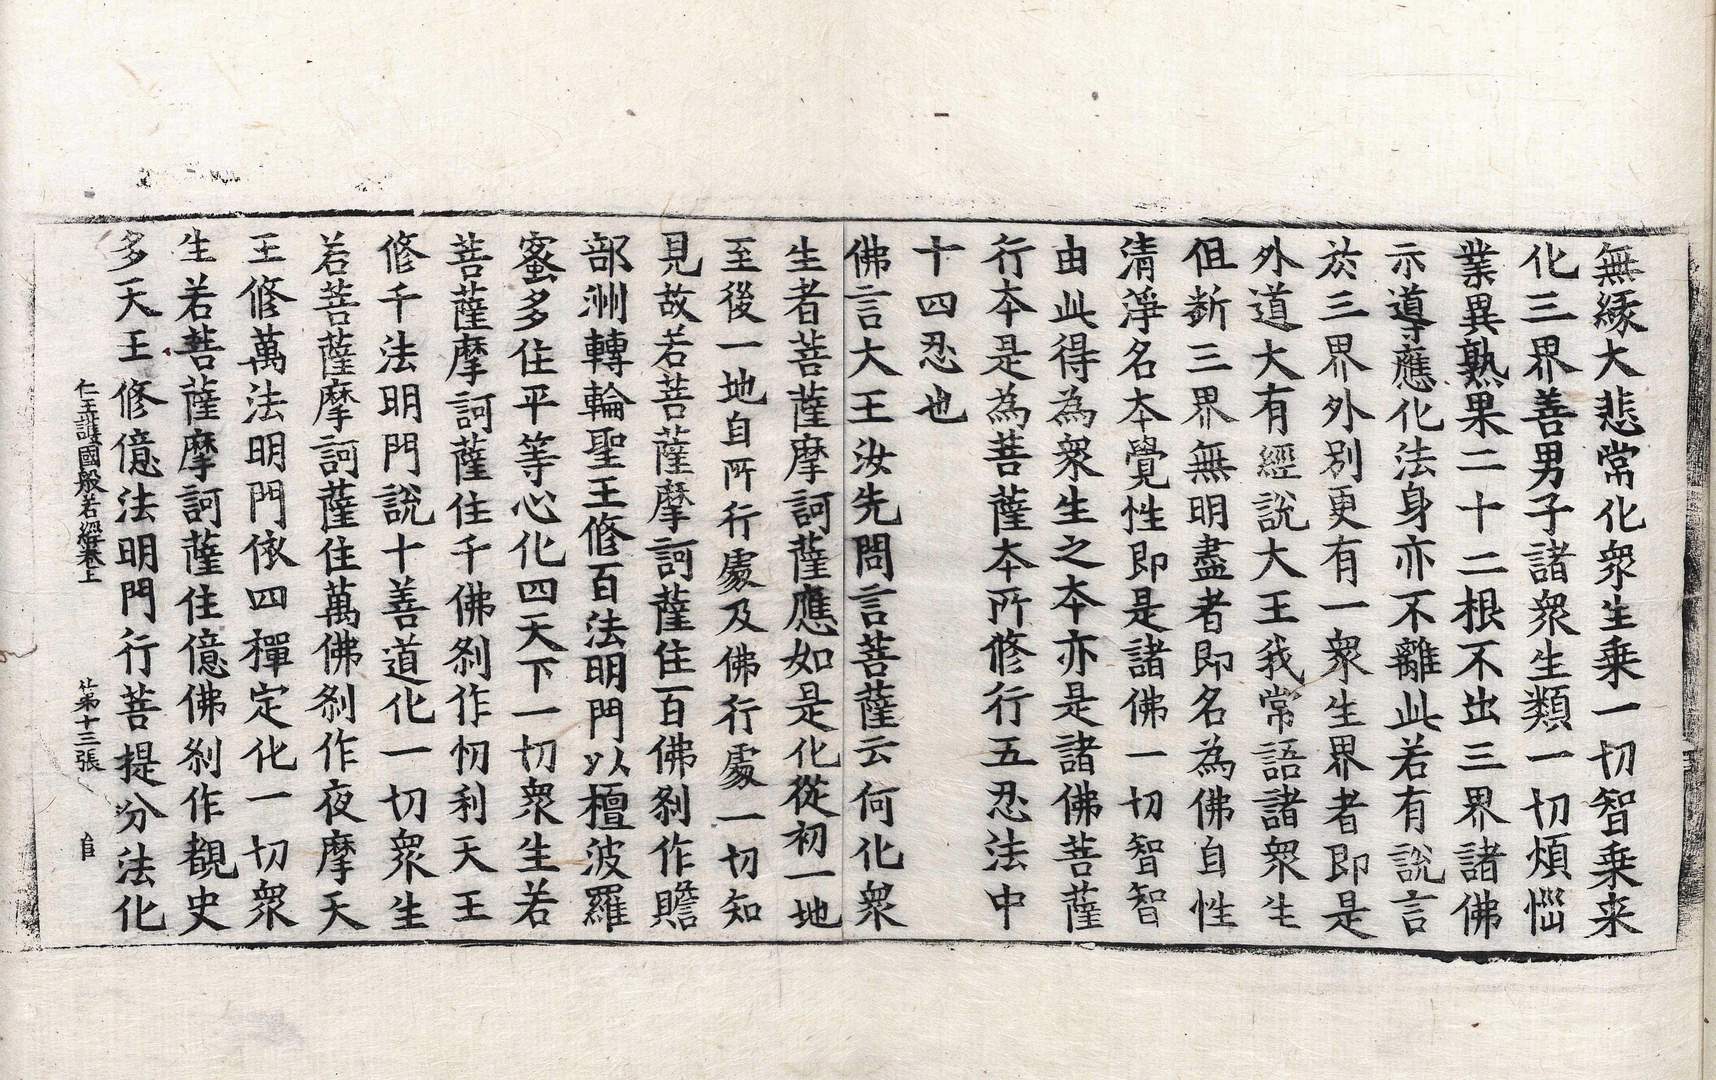 無緣大悲常化衆生乗一切智乗来
化三界善男子諸衆生類一切煩惱
業異熟果二十二根不出三界諸佛
示導應化法身亦不離此若有說言
於三界外別更有一衆生界者即是
外道大有經說大王我常語諸衆生
但斷三界無明盡者即名為佛自性
清淨名本覺性即是諸佛一切智智
由此得為衆生之本亦是諸佛菩薩
行本是為菩薩本所修行五忍法中
十四忍也
佛言大王汝先問言菩薩云何化衆
生者菩薩摩訶薩應如是化從初一地
至後一地自所行處及佛行處一切知
見故若菩薩摩訶薩住百佛剎作贍
部洲轉輪聖王修百法明門以檀波羅
蜜多住平等心化四天下一切衆生若
菩薩摩訶薩住千佛剎作忉利天王
修千法明門說十善道化一切衆生
若菩薩摩訶薩住萬佛剎作夜摩天
王修萬法明門依四禪定化一切衆
生若菩薩摩訶薩住億佛剎作覩史
多天王修億法明門行菩提分法化
仁王護國般若經卷上 第十三張